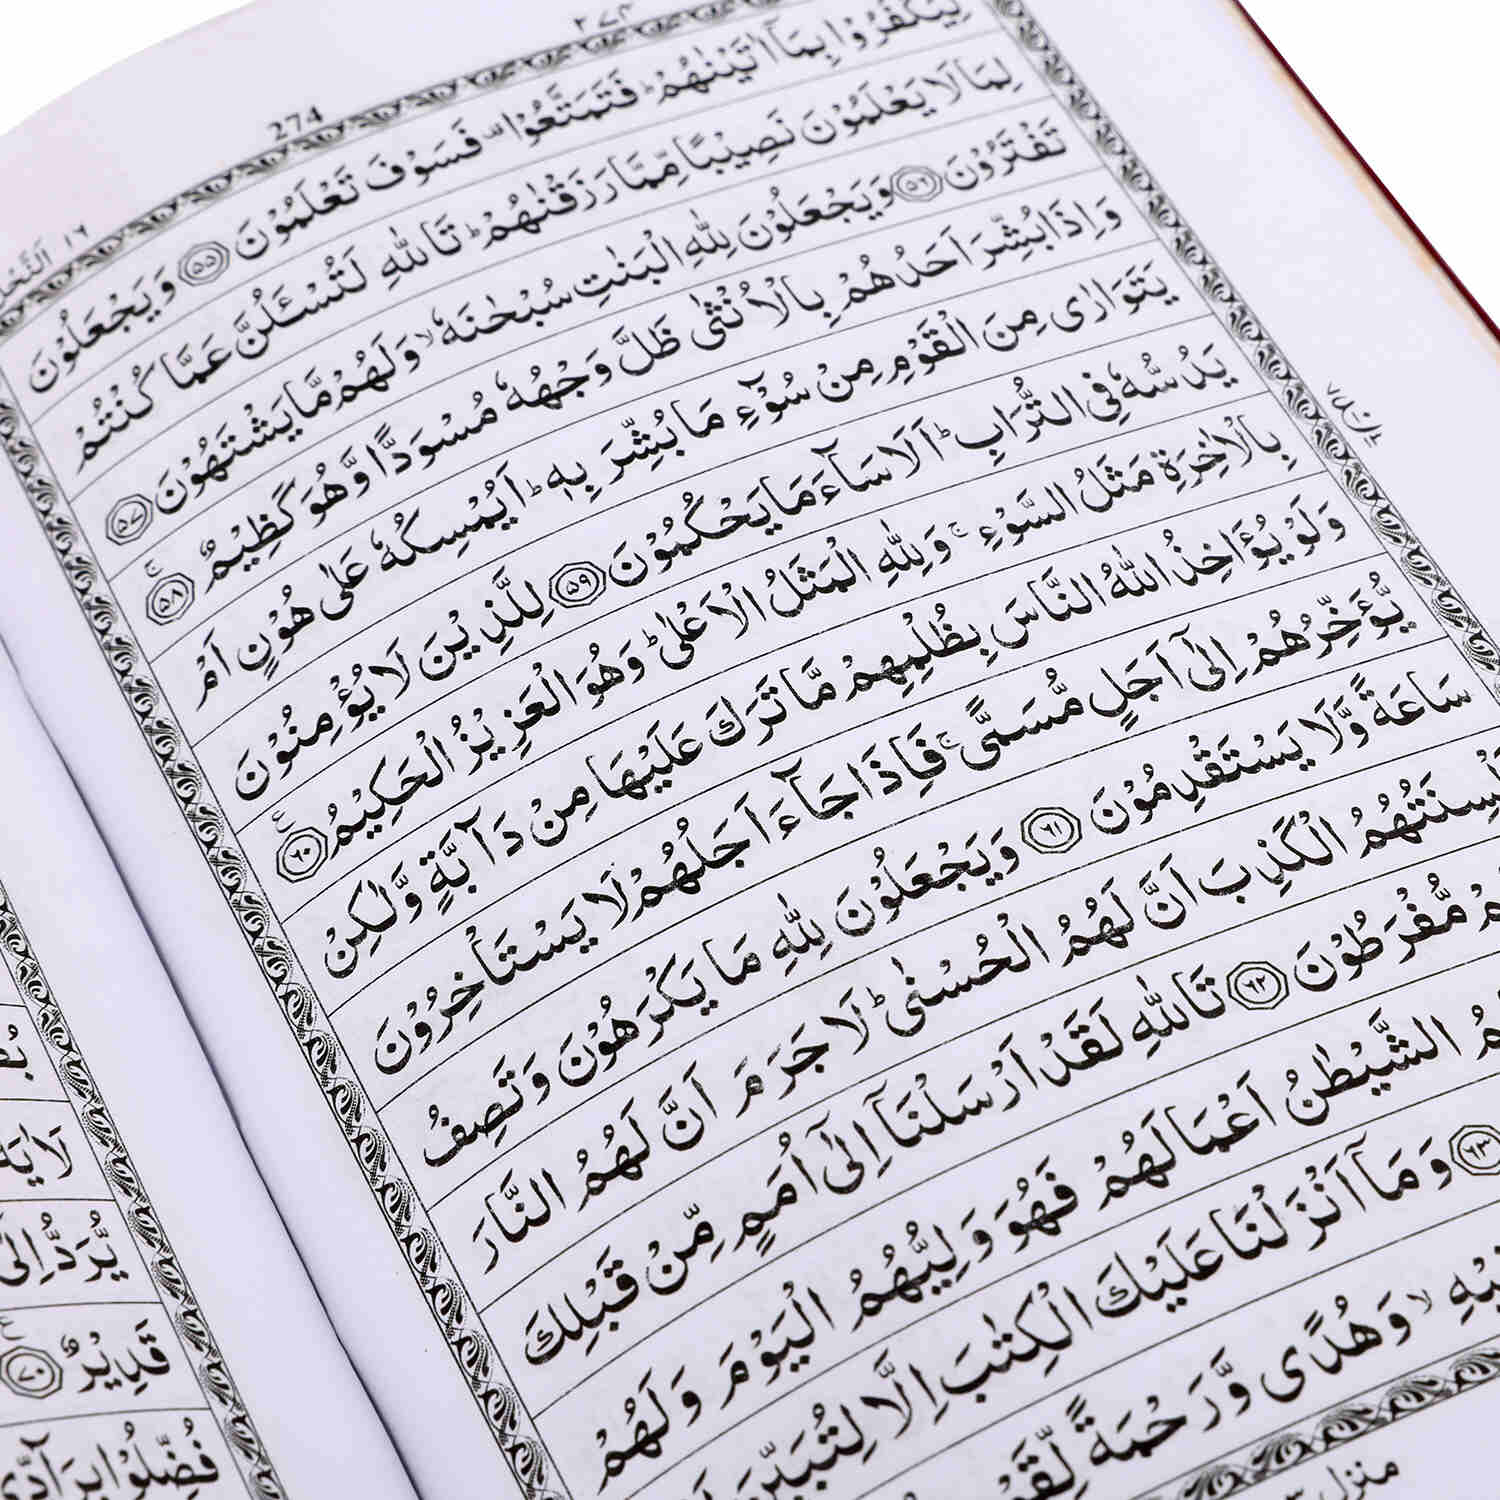 ٢٧٤
274
١٦ النَّحْل
لِيَكْفُرُوْا بِمَآ اٰتَيْنٰهُمْ ؕ فَتَمَتَّعُوْا ۟ فَسَوْفَ تَعْلَمُوْنَ ﴿۵۵﴾ وَيَجْعَلُوْنَ
لِمَا لَا يَعْلَمُوْنَ نَصِيْبًا مِّمَّا رَزَقْنٰهُمْ ؕ تَاللّٰهِ لَتُسْـَٔلُنَّ عَمَّا كُنْتُمْ
تَفْتَرُوْنَ ﴿۵۶﴾ وَيَجْعَلُوْنَ لِلّٰهِ الْبَنٰتِ سُبْحٰنَهٗ ۙ وَلَهُمْ مَّا يَشْتَهُوْنَ ﴿۵۷﴾
وَاِذَا بُشِّرَ اَحَدُهُمْ بِالْاُنْثٰى ظَلَّ وَجْهُهٗ مُسْوَدًّا وَّهُوَ كَظِيْمٌ ۚ ﴿۵۸﴾
يَتَوَارٰى مِنَ الْقَوْمِ مِنْ سُوْٓءِ مَا بُشِّرَ بِهٖ ؕ اَيُمْسِكُهٗ عَلٰى هُوْنٍ اَمْ
يَدُسُّهٗ فِى التُّرَابِ ؕ اَلَا سَآءَ مَا يَحْكُمُوْنَ ﴿۵۹﴾ لِلَّذِيْنَ لَا يُؤْمِنُوْنَ
بِالْاٰخِرَةِ مَثَلُ السَّوْءِ ۚ وَلِلّٰهِ الْمَثَلُ الْاَعْلٰى ؕ وَهُوَ الْعَزِيْزُ الْحَكِيْمُ ﴿۶۰﴾ ع
وَلَوْ يُؤَاخِذُ اللّٰهُ النَّاسَ بِظُلْمِهِمْ مَّا تَرَكَ عَلَيْهَا مِنْ دَآبَّةٍ وَّلٰكِنْ
يُّؤَخِّرُهُمْ اِلٰٓى اَجَلٍ مُّسَمًّى ۚ فَاِذَا جَآءَ اَجَلُهُمْ لَا يَسْتَاْخِرُوْنَ
سَاعَةً وَّلَا يَسْتَقْدِمُوْنَ ﴿۶۱﴾ وَيَجْعَلُوْنَ لِلّٰهِ مَا يَكْرَهُوْنَ وَتَصِفُ
اَلْسِنَتُهُمُ الْكَذِبَ اَنَّ لَهُمُ الْحُسْنٰى ؕ لَا جَرَمَ اَنَّ لَهُمُ النَّارَ
مُّفْرَطُوْنَ ﴿۶۲﴾ تَاللّٰهِ لَقَدْ اَرْسَلْنَآ اِلٰٓى اُمَمٍ مِّنْ قَبْلِكَ
الشَّيْطٰنُ اَعْمَالَهُمْ فَهُوَ وَلِيُّهُمُ الْيَوْمَ وَلَهُمْ
﴿۶۳﴾ وَمَآ اَنْزَلْنَا عَلَيْكَ الْكِتٰبَ اِلَّا لِتُبَيِّنَ
وَهُدًى وَّرَحْمَةً لِّقَوْمٍ
منزل
لَاٰيَةً
يُّرَدُّ اِلٰٓى
قَدِيْرٌ ﴿۷۰﴾
فُضِّلُوْا بِرَآدِّىْ